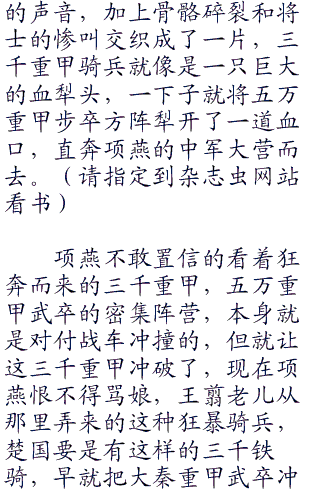 的声音，加上骨骼碎裂和将
士的惨叫交织成了一片，三
千重甲骑兵就像是一只巨大
的血犁头，一下子就将五万
重甲步卒方阵犁开了一道血
口，直奔项燕的中军大营而
去。（请指定到杂志虫网站
看书）
项燕不敢置信的看着狂
奔而来的三千重甲，五万重
甲武卒的密集阵营，本身就
是对付战车冲撞的，但就让
这三千重甲冲破了，现在项
燕恨不得骂娘，王翦老儿从
那里弄来的这种狂暴骑兵，
楚国要是有这样的三千铁
骑，早就把大秦重甲武卒冲